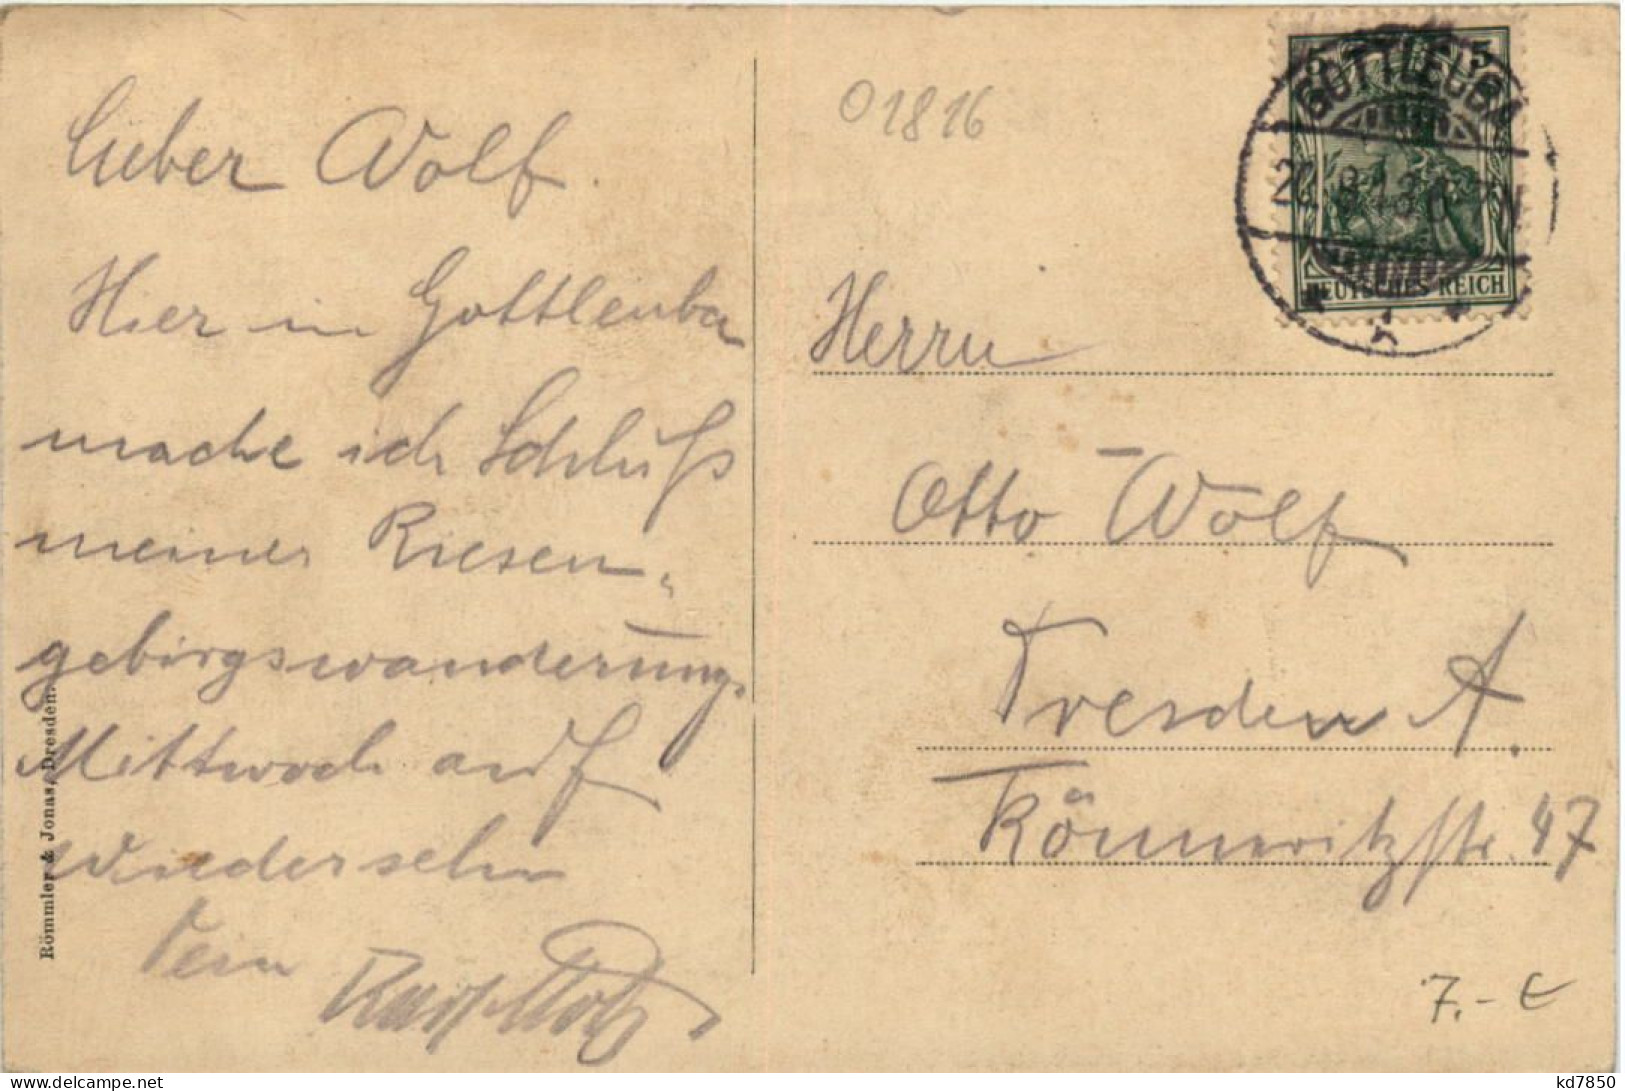 Lieber Wolf.
Hier in Gottleuba
mache ich Schluß
meiner Riesen-
gebirgswanderung.
Mittwoch auf
wiedersehn
Dein
Römmler & Jonas, Dresden.
01816
GOTTLEUBA
5
DEUTSCHES REICH
Herrn
Otto Wolf
Dresden A.
Könneritzstr. 47
7.- €
kd7850